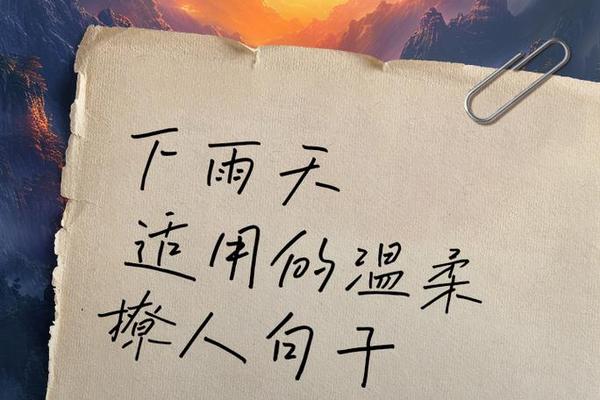 下雨天
适用的温柔
撩人句子